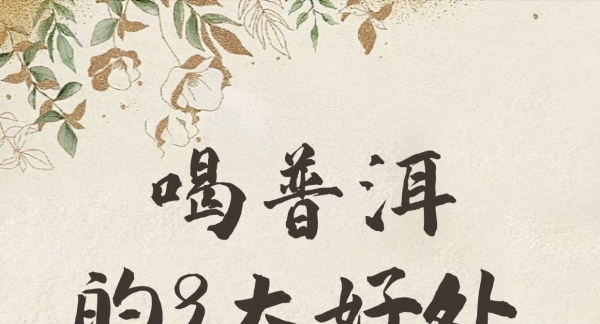 喝普洱
的8大好处